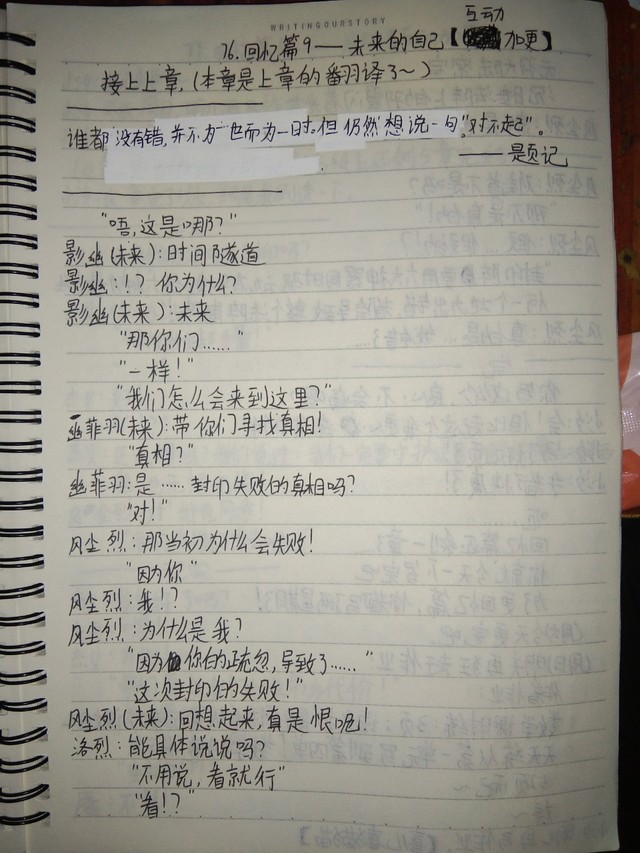 WRITINGOURSTORY
互动
76.回忆篇9——未来的自己【加更】
接上上章,(本章是上章的番羽译了~)
谁都没有错,并不为一也而为一时。但仍然想说一句。"对不起"。
——题记
"唔,这是哪?"
影幽(未来):时间隧道
影幽:!?你为什么?
影幽(未来):未来
"那你们……"
"一样!"
"我们怎么会来到这里?"
幽菲羽(未来):带你们寻找真相!
"真相?"
幽菲羽:是……封印失败的真相吗?
"对!"
风尘烈:那当初为什么会失败!
"因为你"
风尘烈:我!?
风尘烈:为什么是我?
"因为你的疏忽,导致了……"
"这次封印的失败!"
风尘烈(未来):回想起来,真是恨呢!
洛烈:能具体说说吗?
"不用说,看就行"
"看!?"